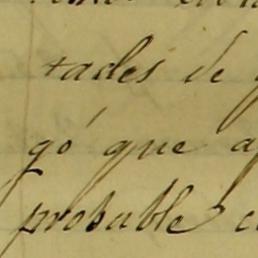 tades de
gó que a
probable c